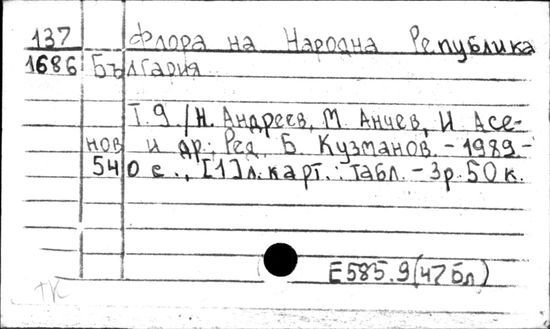 137 Флора на Народна Република
1686 България
Т. 9 / Н. Андреев, М. Анчев, И. Асе-
нов и др.; Ред. Б. Кузманов. - 1989. -
540 с., [1] л. карт.: табл. - 3р. 50 к.
Е585.9(47Бл)
тк